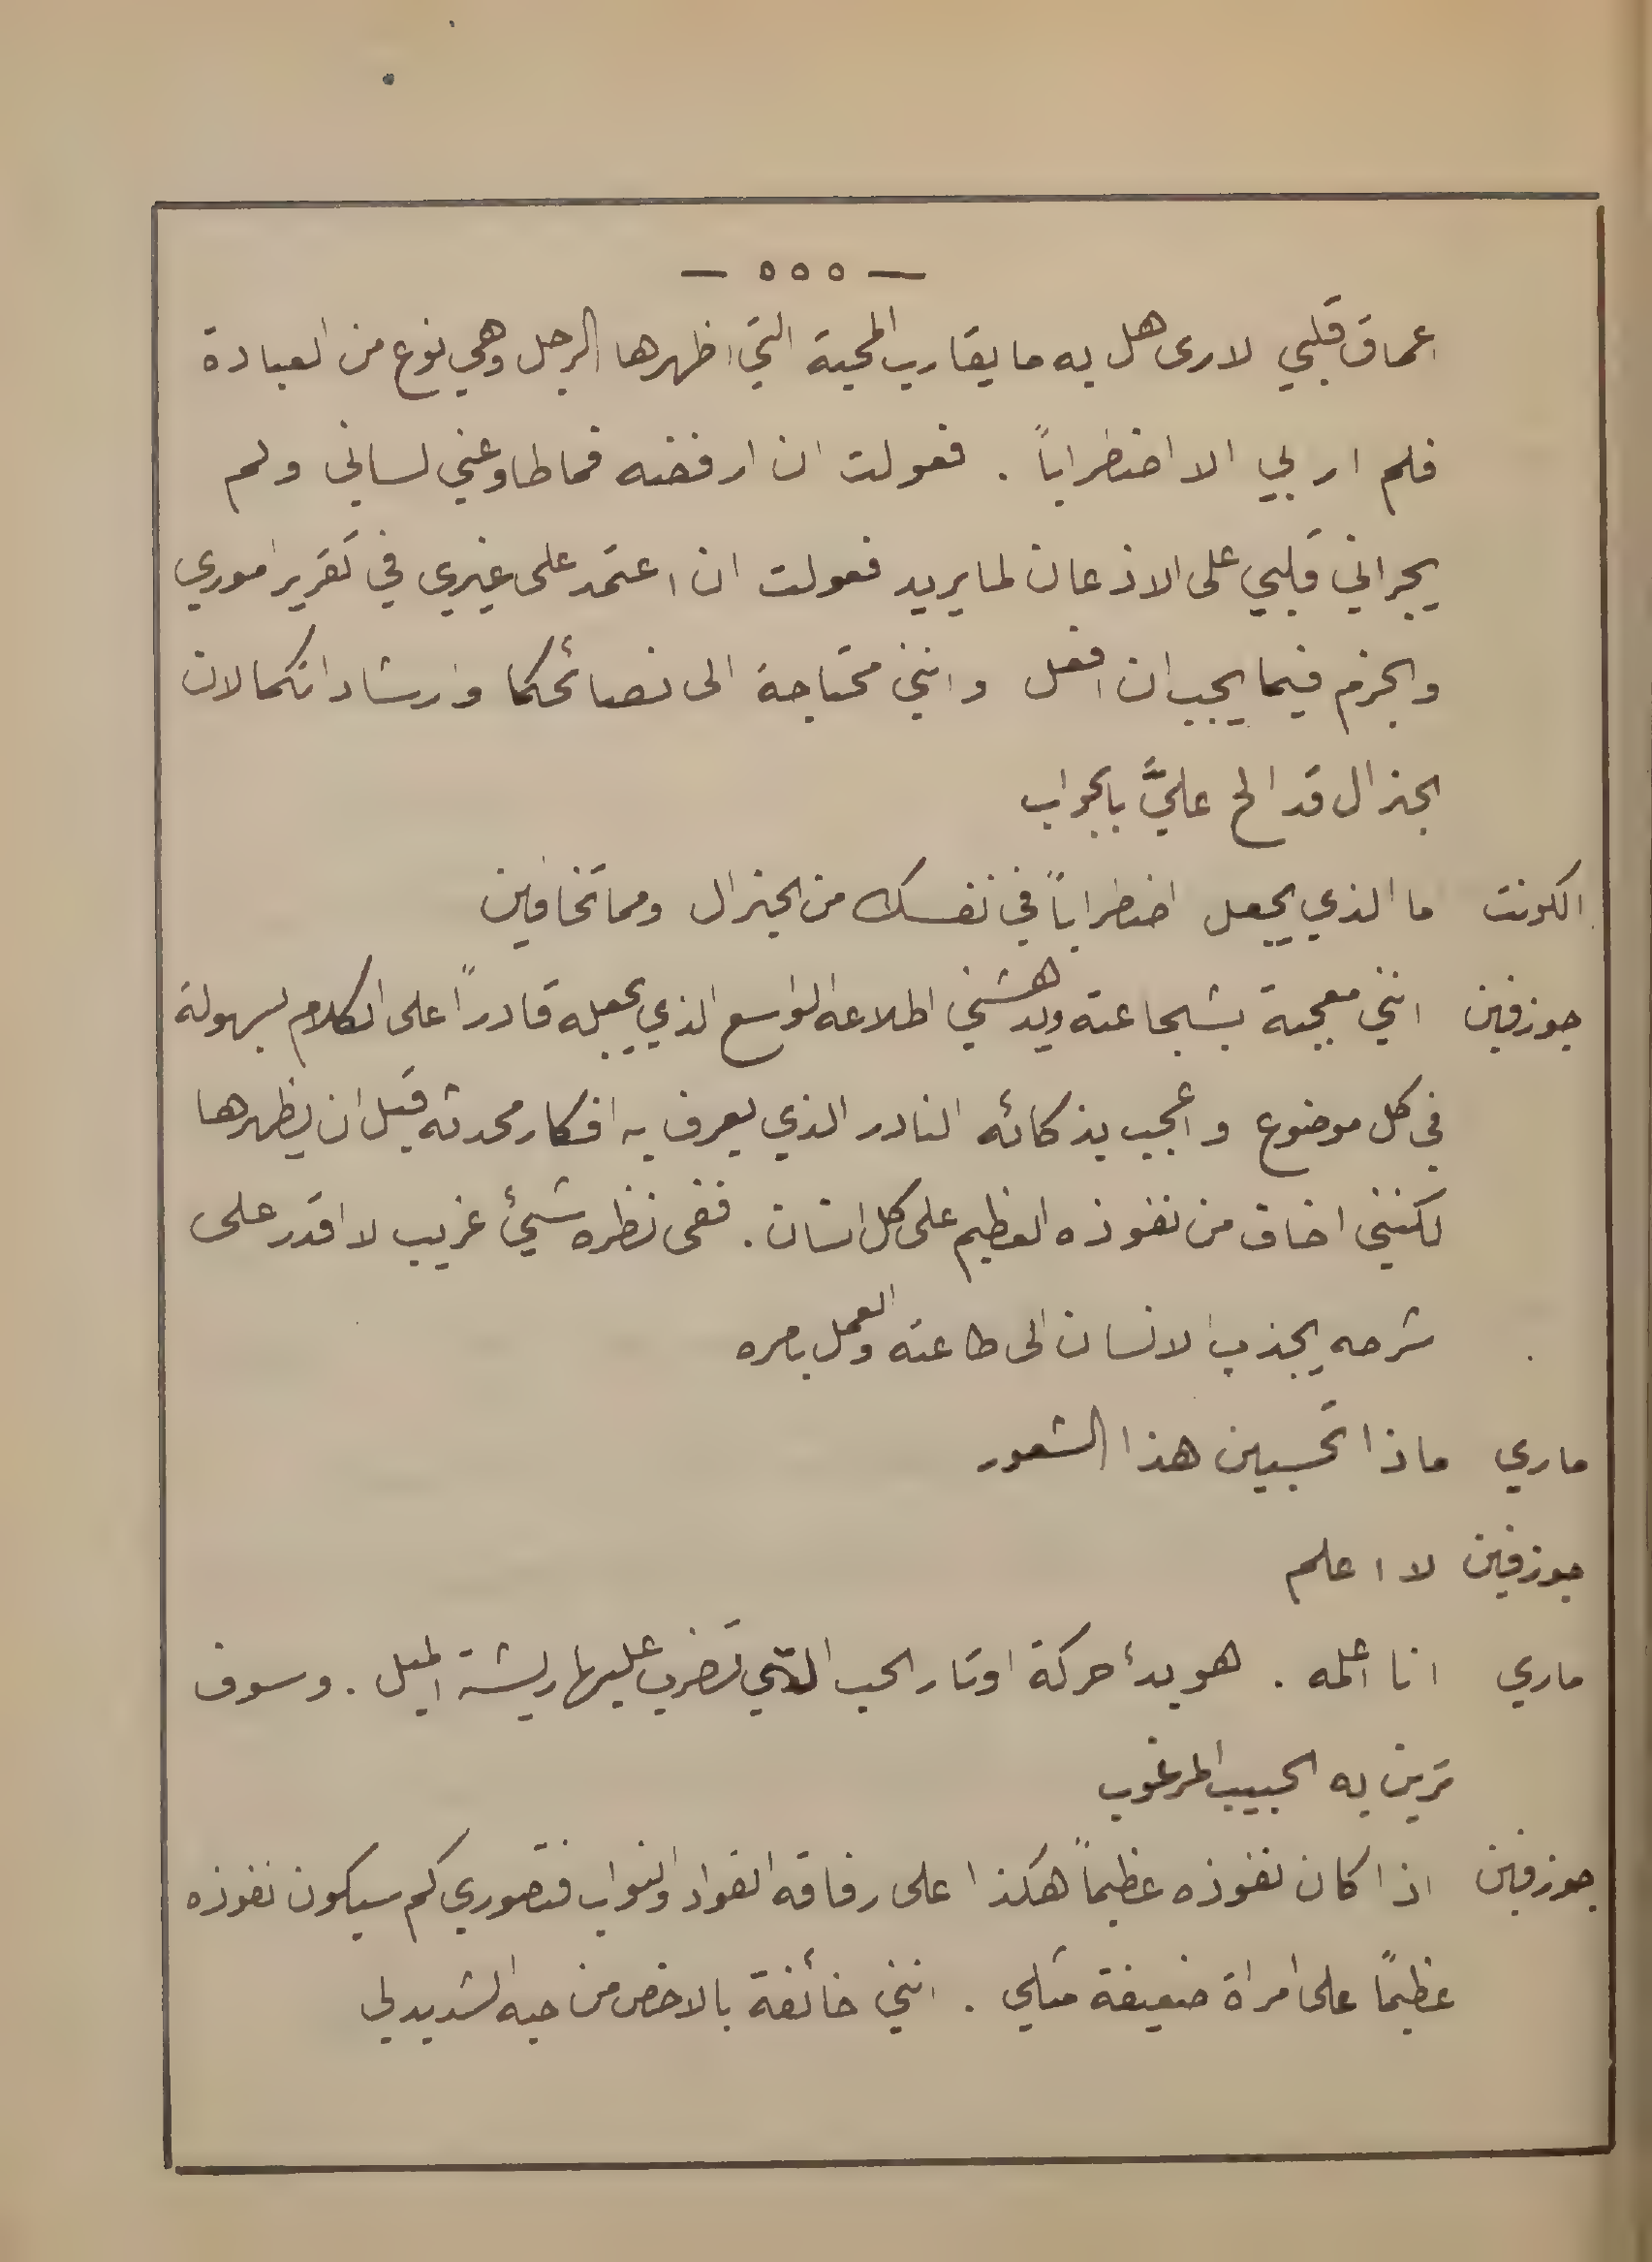 — ٥٥٥ —
اعماق قلبي لارى هل به ما يقارب المحبة التي اظهرها الرجل وهي نوع من العبادة
فلم ار بي الا اضطراباً . فعولت ان ارفضه فما طاوعني لساني ولم
يجراني قلبي على الاذعان لما يريد فعولت ان اعتمد على غيري في تقرير اموري
والجزم فيما يجب ان افعل وانني محتاجة الى نصائحكما وارشاداتكما لان
الجنرال قد الح عليَّ بالجواب
الكونت ما الذي يجعل اضطراباً في نفسك من الجنرال ومما تخافين
جوزفين انني معجبة بشجاعته ويدهشني اطلاعه الواسع الذي يجعله قادراً على الكلام بسهولة
في كل موضوع واعجب بذكائه النادر الذي يعرف به افكار محدثه قبل ان يظهرها
لكنني اخاف من نفوذه العظيم على كل انسان . ففي نظره شيئ غريب لا اقدر على
شرحه يجذب الانسان الى طاعته والعمل بامره
ماري ماذا تحسبين هذا الشعور
جوزفين لا اعلم
ماري انا اعلمه . هو بدء حركة اوتار الحب التي تضرب عليها ريشة الميل . وسوف
ترين به الحبيب المرغوب
جوزفين اذا كان نفوذه عظيماً هكذا على رفاقه القواد والنواب فتصوري كم سيكون نفوذه
عظيماً على امراة ضعيفة مثلي . انني خائفة بالاخص من حبه الشديد لي